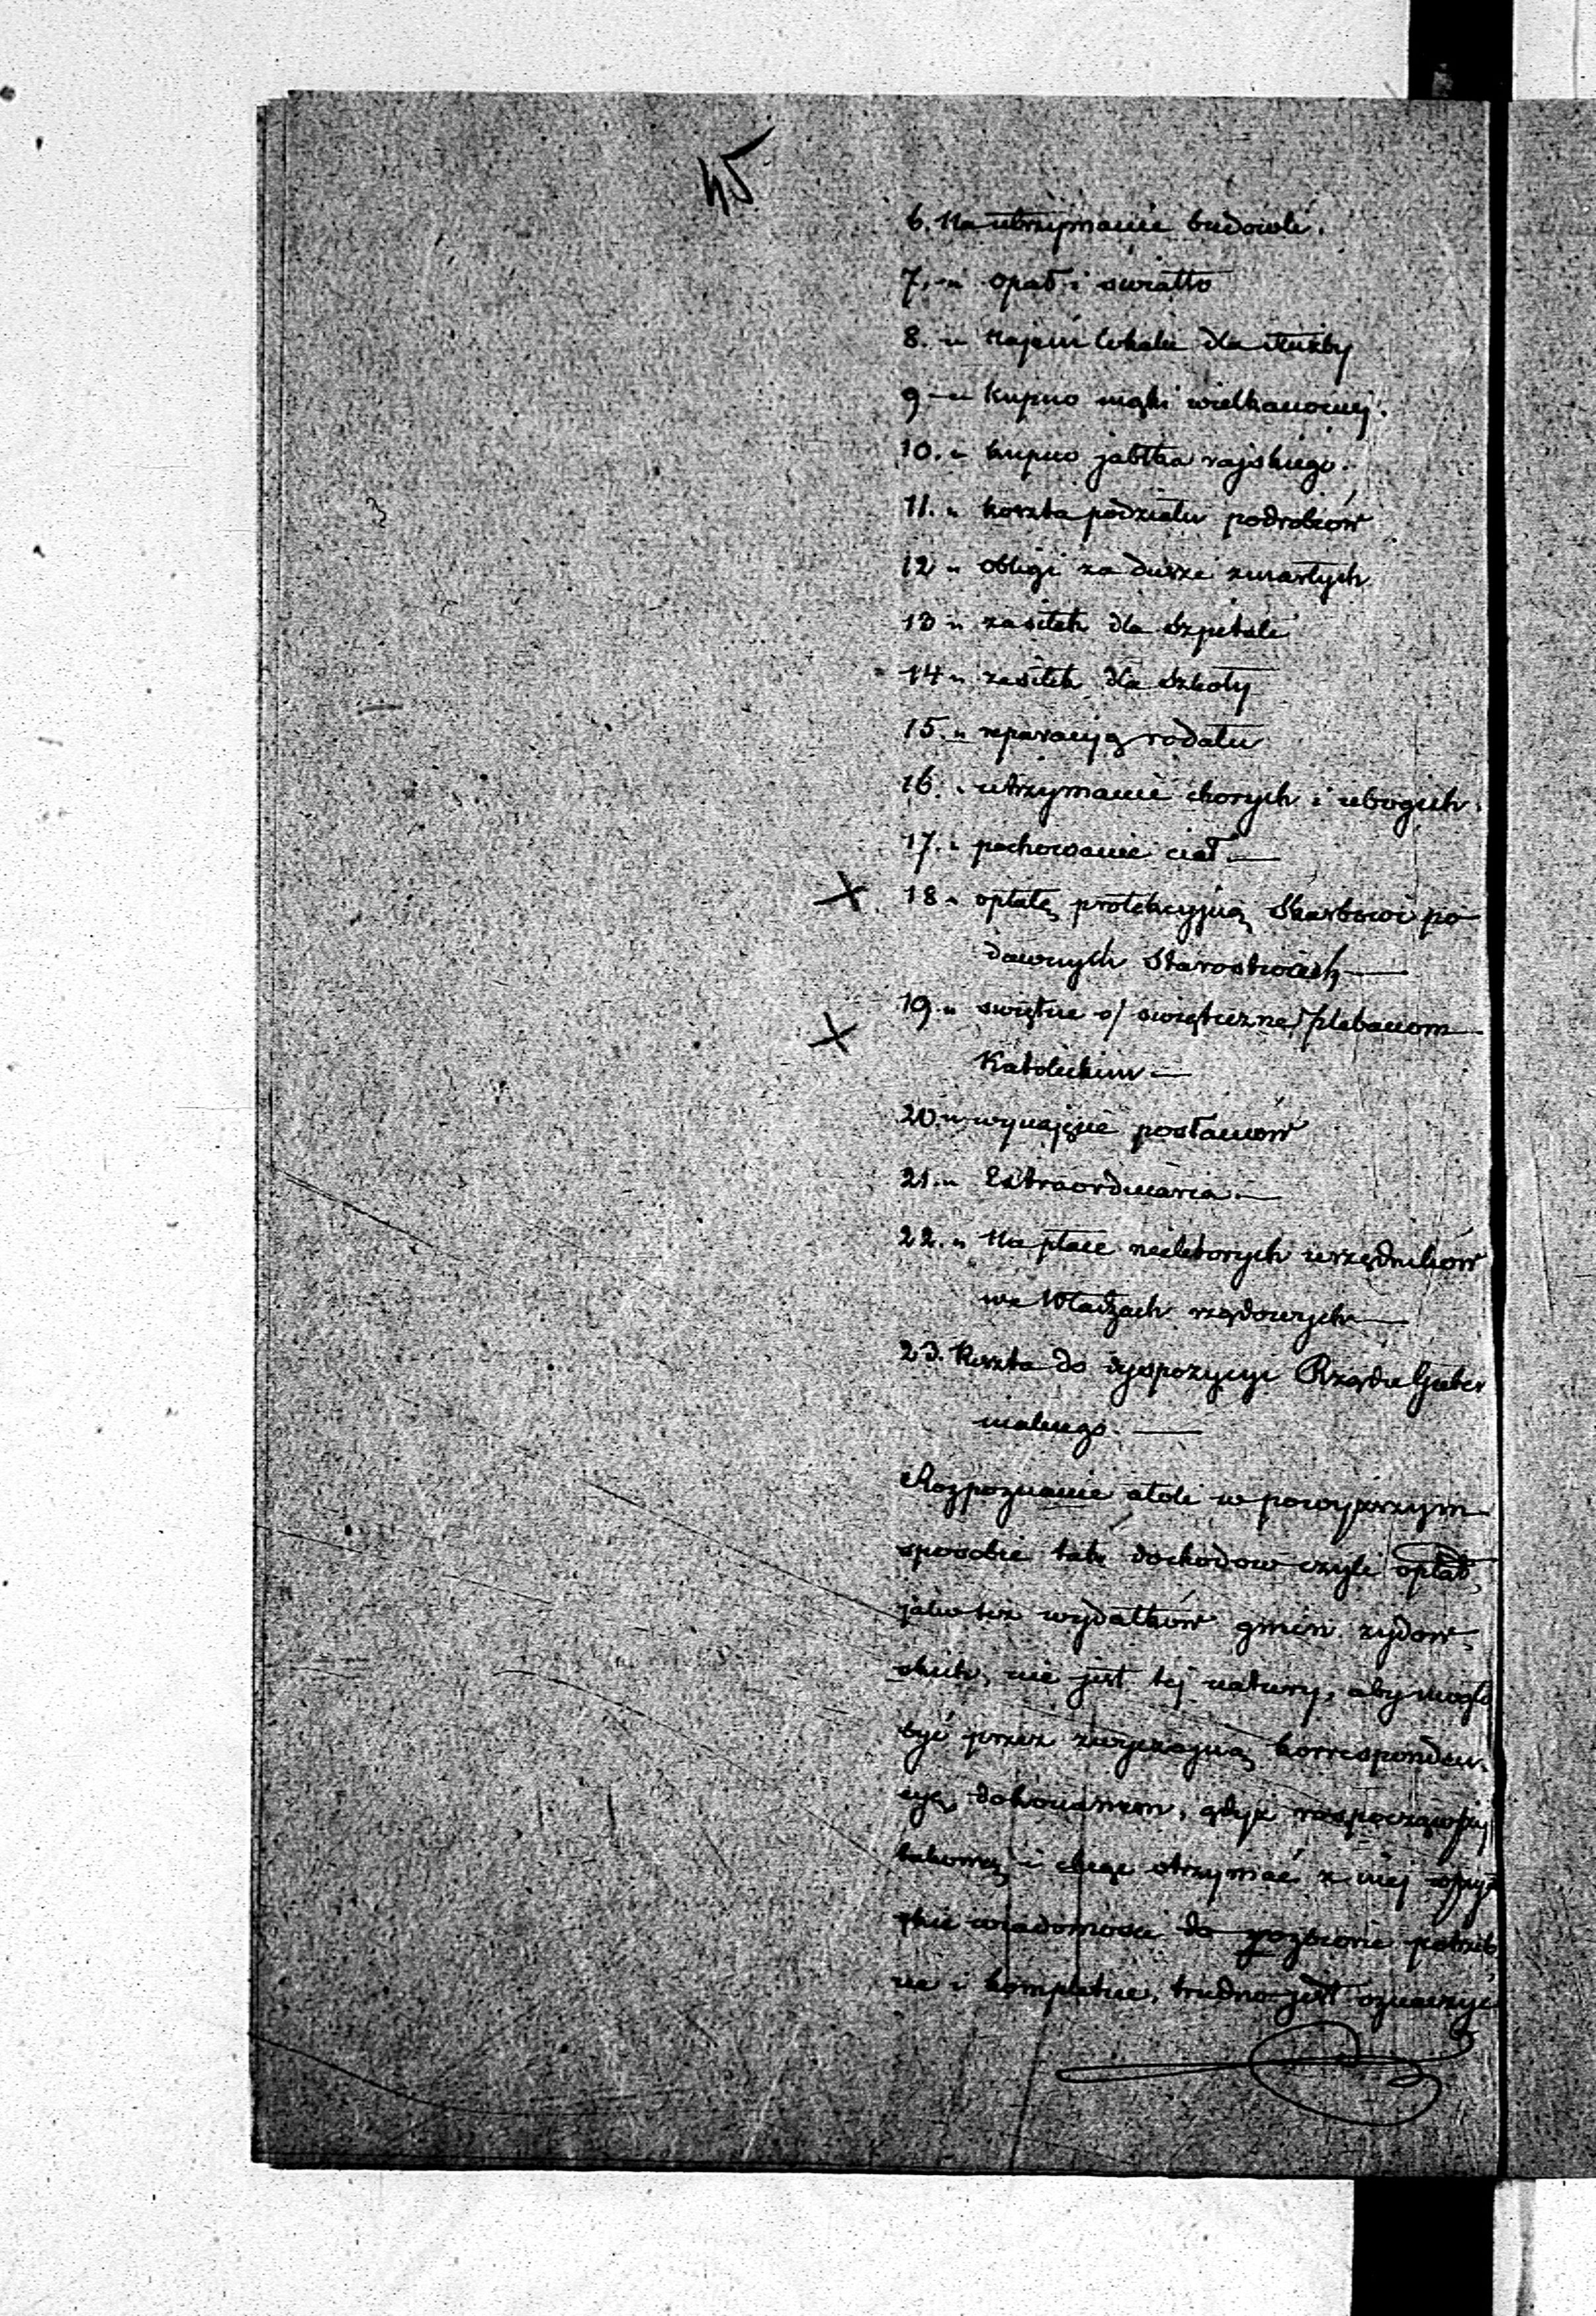 45
6. Na utrzymanie budowli.
7. " opał i swiatło
8. " Najem lokalu dla służby
9 " Kupno mąki wielkanocnej.
10. " kupno jabłka rajskiego.
11. " koszta podziału podrobków
12 " obligi za dusze zmarłych
13 " zasiłek dla Szpitala
14 " zasiłek dla Szkoły
15. " reparacyją rodału
16. " utrzymanie chorych i ubogich.
17. " pochowanie ciał —
18 " opłatę protekcyjną Skarbowi po
dawnych Starostwach —
19 " swiętne świąteczne / plebanom
Katolickim —
20. " wynajęcie posłańców
21. " Extraordinaria —
22. " Na płace niektorych urzędników
we Władzach rządowych —
23. Koszta do dyspozycyi Rządu Guber
nialnego. —
Rozpoznanie atoli w powyższym
sposobie tak dochodow czyli opłat,
jako też wydatków gmin żydow-
skich, nie jest tej natury, aby mogło
być przez zwyczajną korresponden-
cyą dokonanem, gdyż rozpocząwszy
takową i chcąc otrzymać z niej wszyst
kie wiadomosci do potrzeb
ne i kompletne, trudno jest oznaczyć